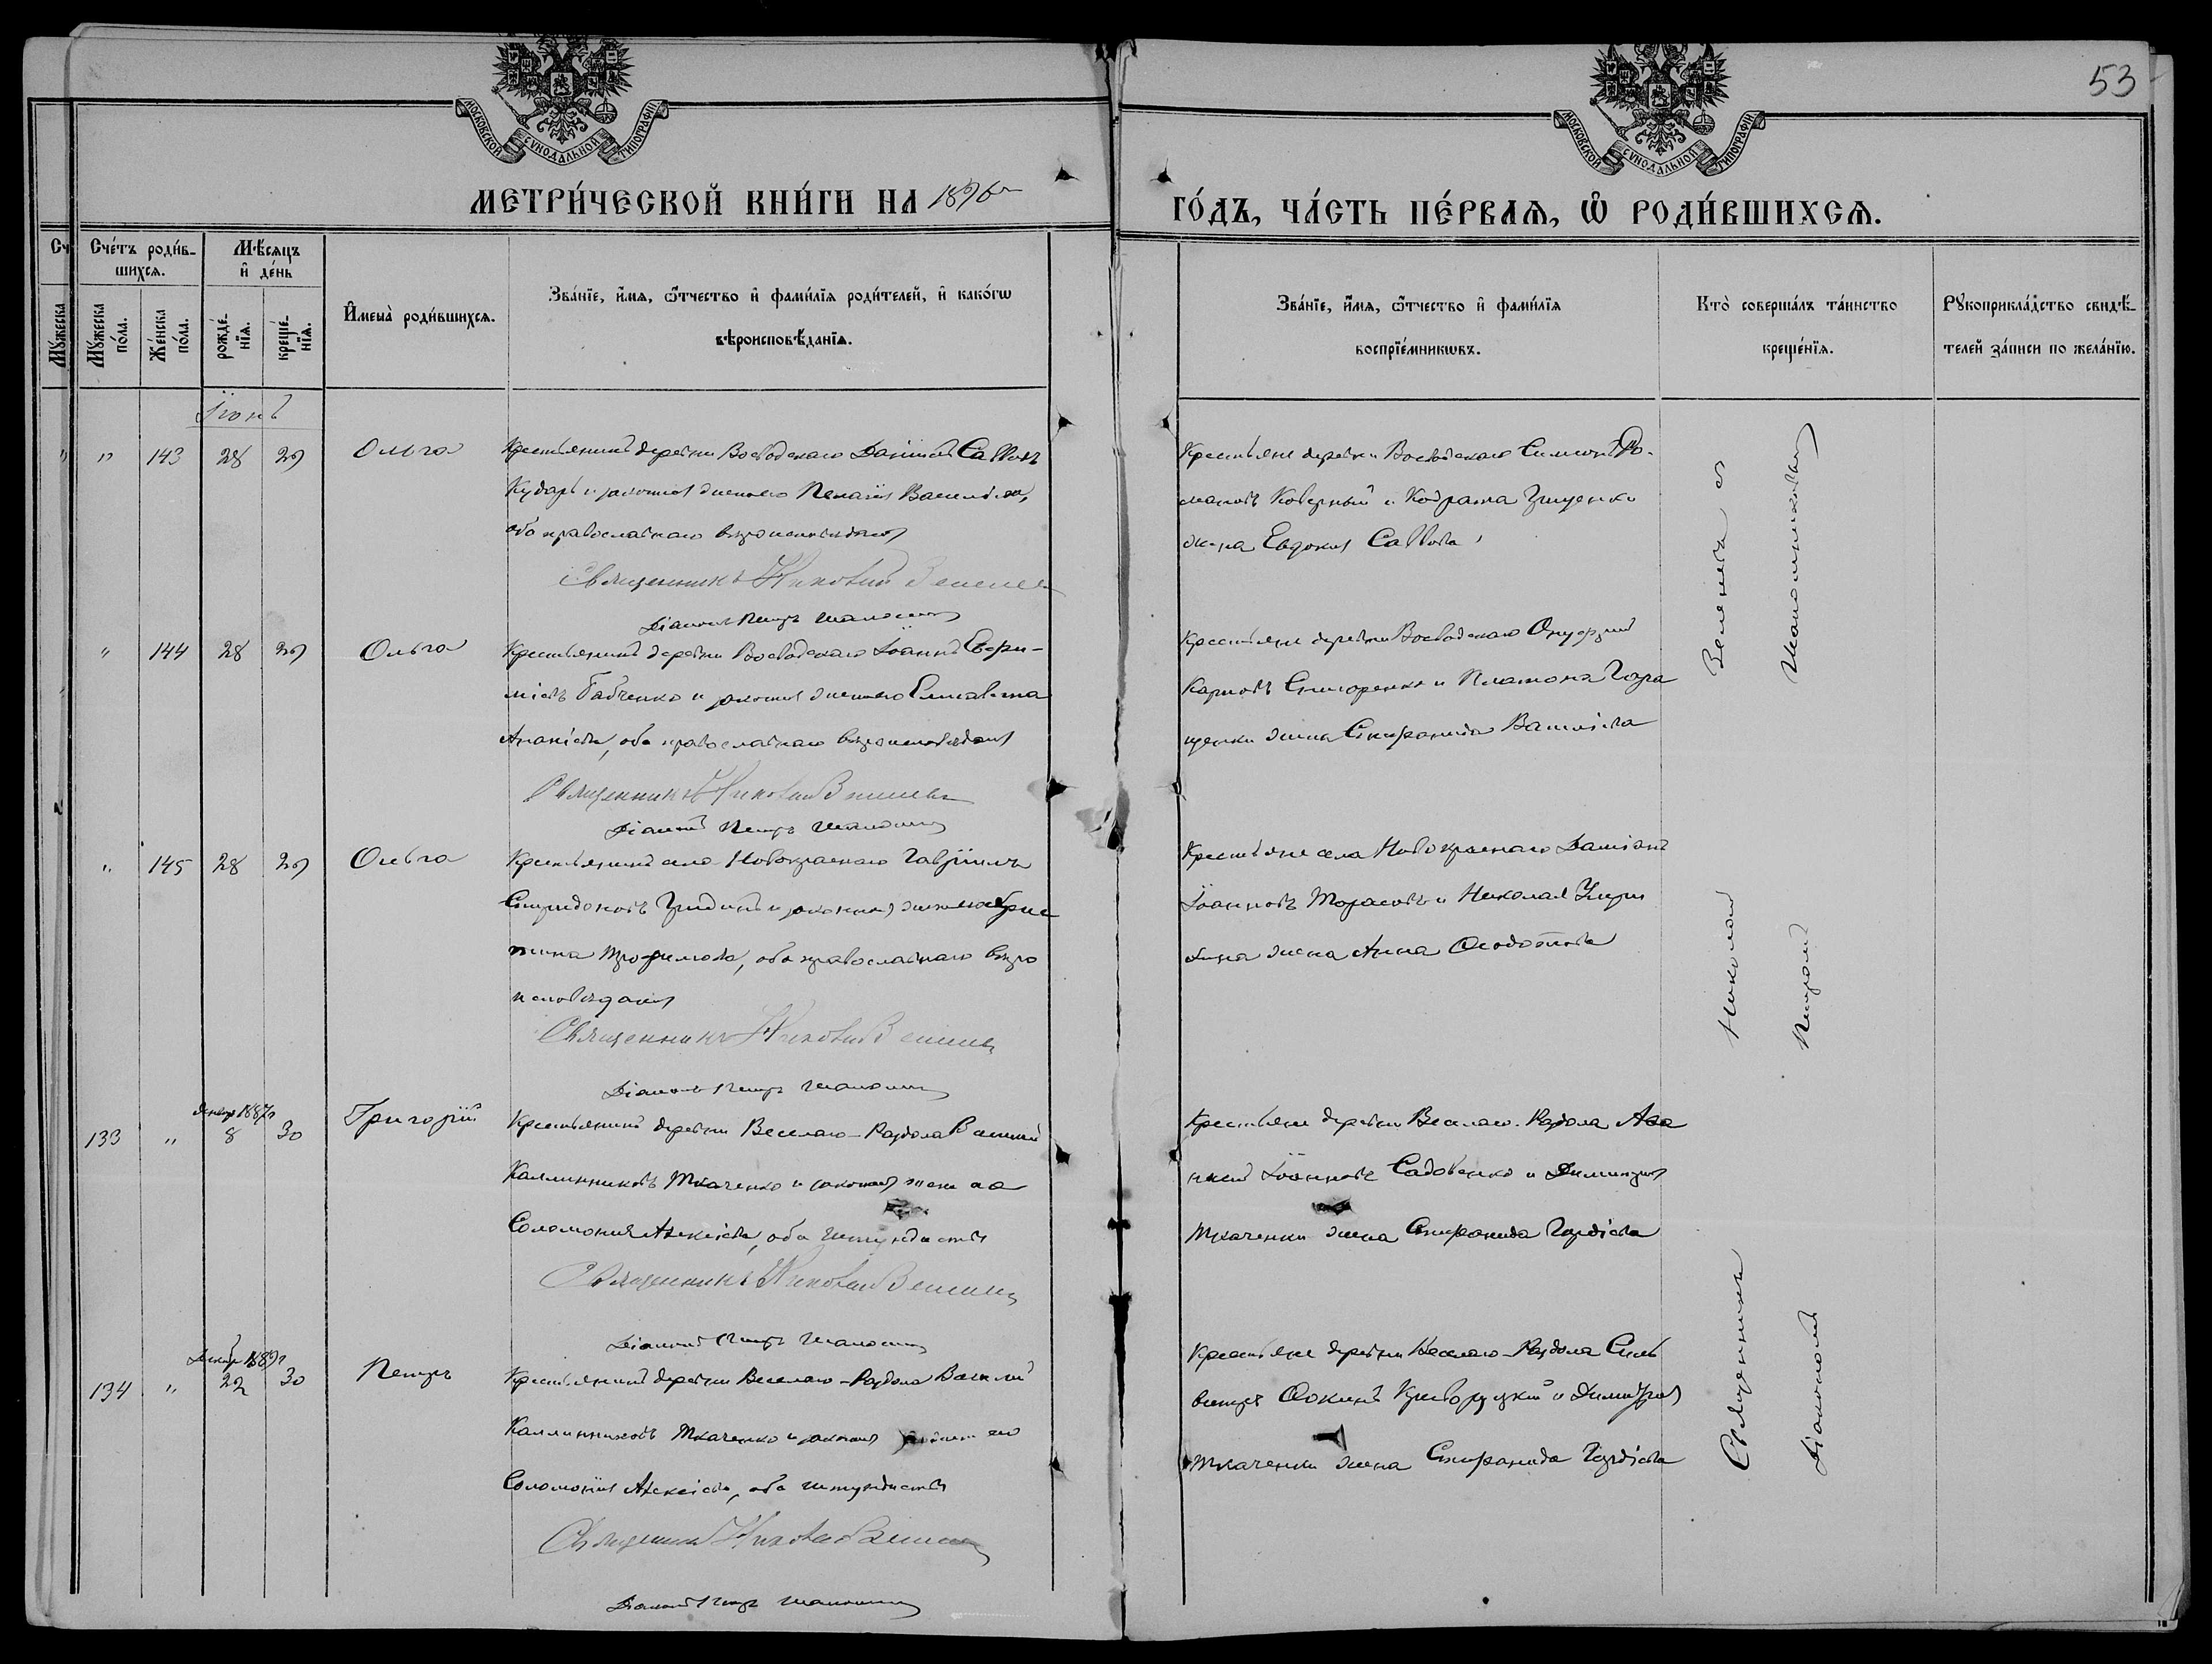 53
МОСКОВСКОЙ СУНОДАЛЬНОЙ ТИПОГРАФІИ
МОСКОВСКОЙ СУНОДАЛЬНОЙ ТИПОГРАФІИ
МЕТРИ́ЧЕСКОЙ КНИ́ГИ НА 1896
ГО́ДЪ, ЧА́СТЬ ПЕ́РВАЯ, Ѡ РОДИ́ВШИХСЯ.
Сч
Мꙋжеска
Сче́тъ роди́в-
шихся.
Мꙋжеска по́ла.
Же́нска по́ла.
Мѣсяцъ
и҆ де́нь
рожде́-
нїя.
креще́-
нїя.
И҆мена̀ роди́вшихся.
Зва́нїе, и҆мя, ѻ҆́тчество и҆ фами́лїя роди́телей, и҆ како́гѡ
вѣроисповѣданїя.
Зва́нїе, и҆мя, ѻ҆́тчество и҆ фами́лїя
воспрїе́мникѡвъ.
Кто̀ соверша́лъ та́инство
креще́нїя.
Рꙋкоприкла́дство свидѣ-
телей за́писи по жела́нїю.
Іюнь
" 143 28 29 Ольга
Крестьянинъ деревни Воеводскаго Даніилъ Саввовъ
Кударь и законная жена его Пелагія Василіева,
оба православнаго вѣроисповѣданія
Священникъ Николай Зеленев
Діаконъ Петръ
Крестьяне деревни Воеводскаго Симеонъ Ро-
мановъ Коверный и Кодрата Грищенко
жена Евдокія Саввова
" 144 28 29 Ольга
Крестьянинъ деревни Воеводскаго Іоаннъ Евфи-
міевъ Бабченко и законная жена его Елисавета
Ананіева, оба православнаго вѣроисповѣданія
Священникъ Николай Зеленев
Діаконъ Петръ
Крестьяне деревни Воеводскаго Онуфрій
Карповъ и Платона Гора
щенки жена Стефанида Василіева
" 145 28 29 Ольга
Крестьянинъ села Новокраснаго Гавріилъ
Спиридоновъ и законная жена его Хрис
тина Трофимова, оба православнаго вѣро
исповѣданія
Священникъ Николай Зеленев
Діаконъ Петръ
Крестьяне села Новокраснаго Даміанъ
Іоанновъ Тарасовъ и Николая
жена Анна Ѳеодотова
Декабр 1887г
133 " 8 30 Григорій
Крестьянинъ деревни Веселаго-Раздола Василій
Каллинниковъ Ткаченко и законная жена его
Соломонія Алексіева, оба штундисты
Священникъ Николай Зеленев
Діаконъ Петръ
Крестьяне деревни Веселаго-Раздола Аѳа
насій Іоанновъ Садовенко и Димитрія
Ткаченки жена Стефанида Гордіева
Декабр 1889г
134 " 22 30 Петръ
Крестьянинъ деревни Веселаго-Раздола Василій
Каллинниковъ Ткаченко и законная жена его
Соломонія Алексіева, оба штундисты
Священникъ Николай Зеленев
Діаконъ Петръ
Крестьяне деревни Веселаго-Раздола Силь
вестръ Ѳокинъ Криворуцкій и Димитрія
Ткаченки жена Стефанида Гордіева
Священникъ Николай Зеленев
Діакономъ Петромъ